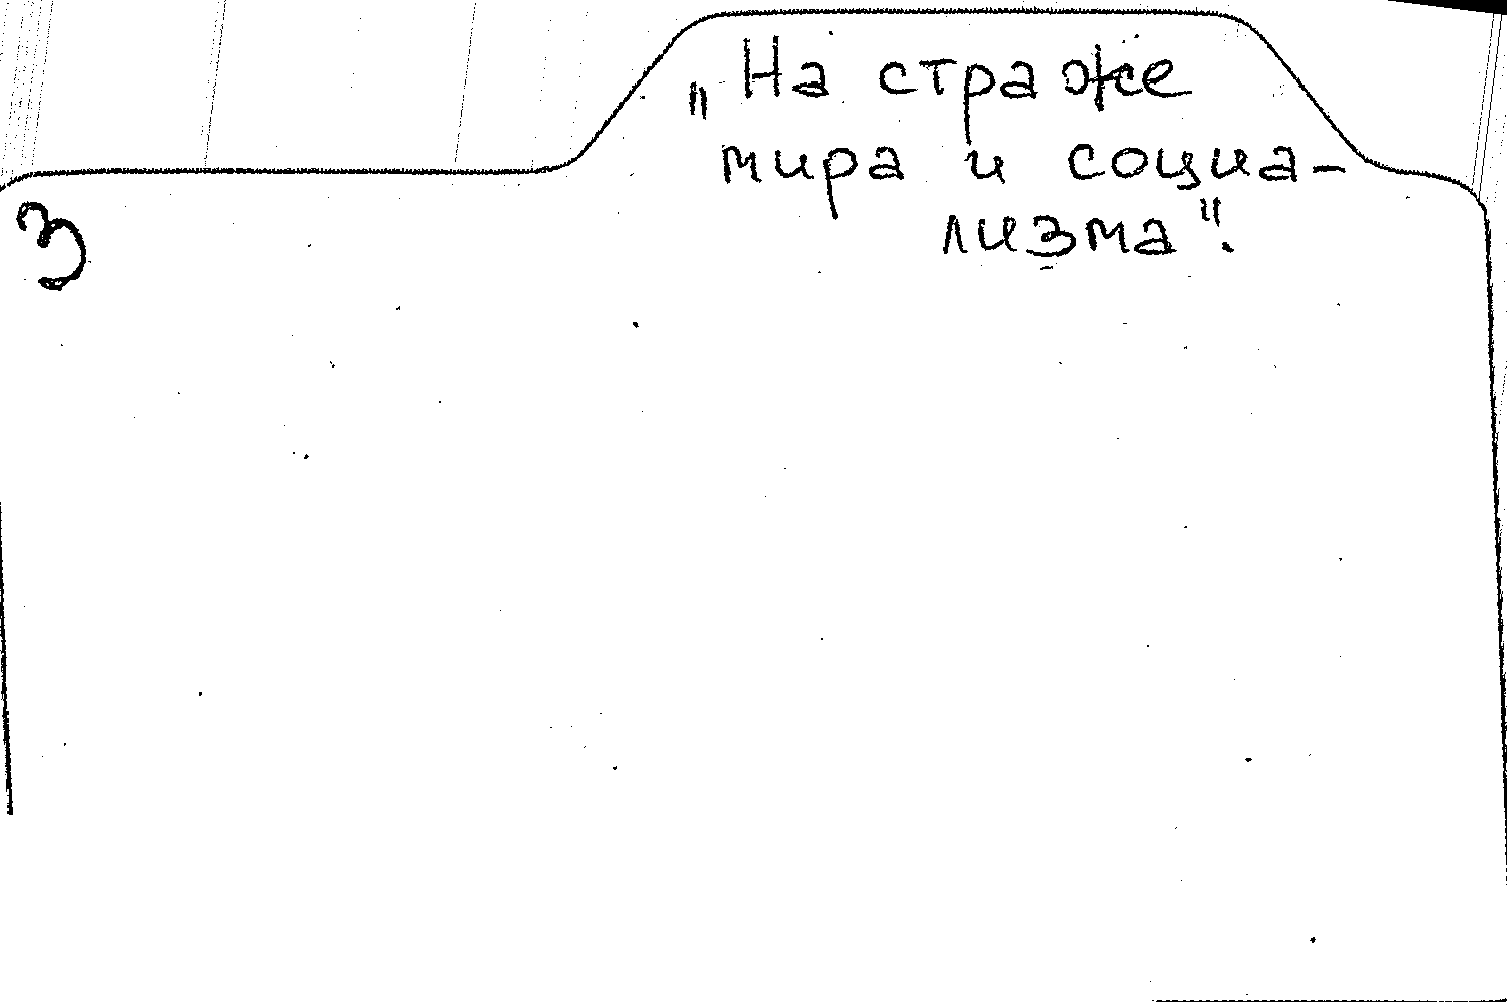 „На страже
мира и социа-
лизма".
З